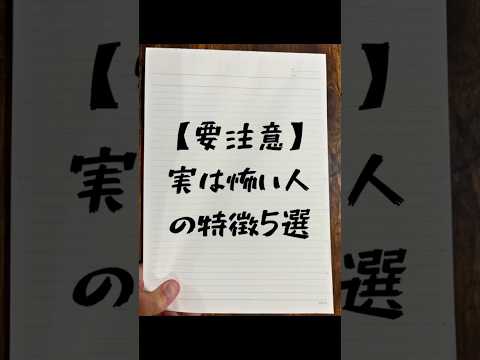 【要注意】
実は怖い人
の特徴5選